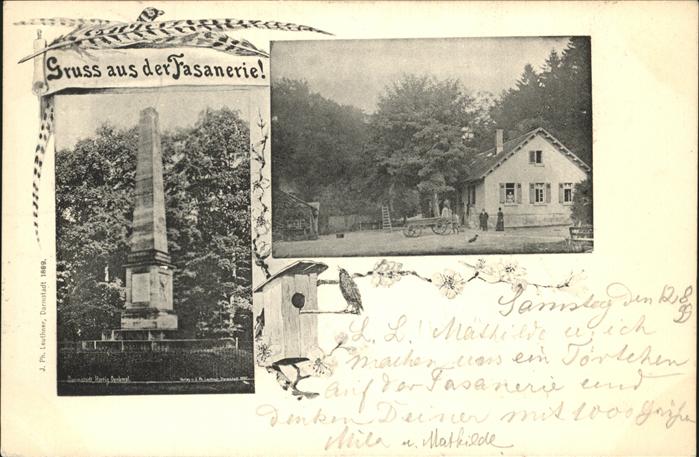 Gruss aus der Fasanerie!
J. Ph. Leuthner, Darmstadt 1889.
Darmstadt Hartig Denkmal.
Verlag v. J. Ph. Leuthner, Darmstadt
Samstag den 12. 8
L. L! Mathilde u. ich
machen uns ein Törtchen
auf der Fasanerie und
denken Deiner mit 1000 Grüßen
Mila u. Mathilde